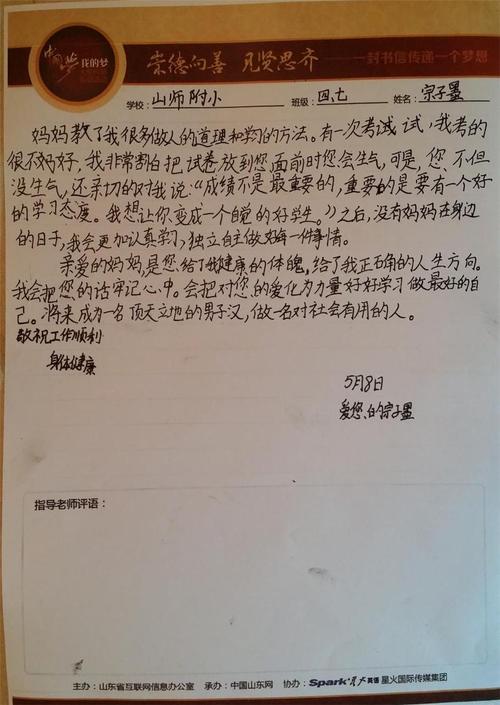 中国梦 我的梦
崇德向善 见贤思齐
一封书信传递一个梦想
学校: 山师附小 班级 四、七 姓名: 宗子墨
妈妈教了我很多做人的道理和学习的方法。有一次考试试,我考的
很不妈好,我非常割白把试卷放到您面前时您会生气,可是,您,不但
没生气,还亲切的对我说:《成绩不是最重要的,重要的是要有一个好
的学习态度。我想让你变成一个自觉的好学生。》之后,没有妈妈在身边
的日子,我会更加认真学习,独立自主做好每一件事情。
亲爱的妈妈,是您给了我健康的体魄,给了我正确的人生方向。
我会把您的话牢记心中。会把对您的爱化为力量好好学习做最好的自
己。将来成为一名顶天立地的男子汉,做一名对社会有用的人。
敬祝工作顺利
身体健康
5月8日
爱您的宗子墨
指导老师评语:
主办:山东省互联网信息办公室 承办:中国山东网 协办:Spark星火英语 星火国际传媒集团